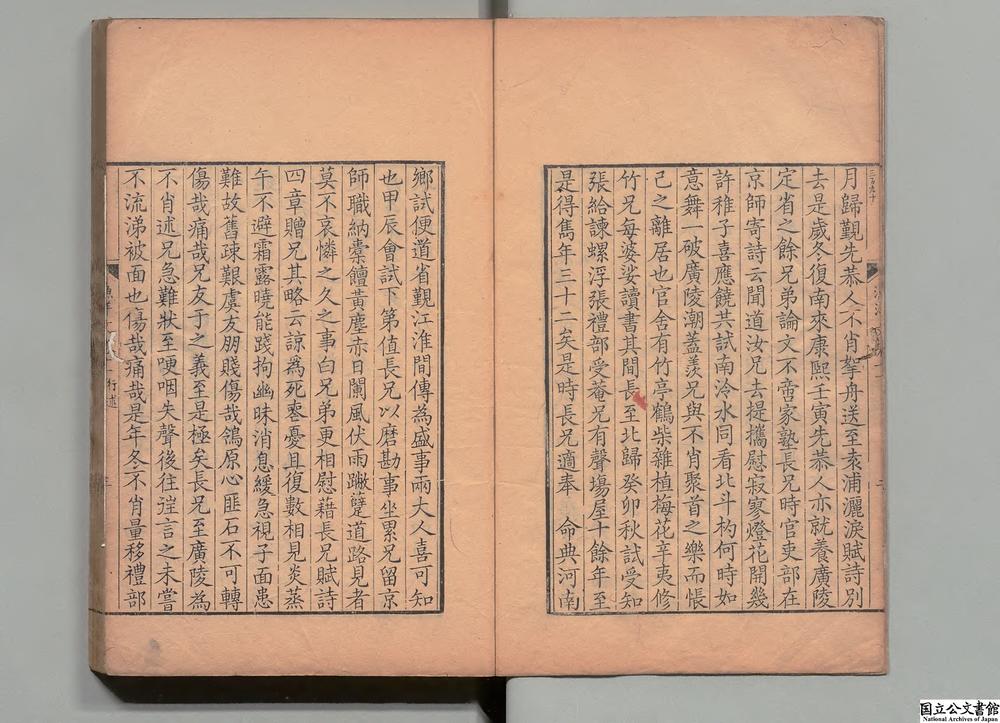 月歸覲先恭人不肖拏舟送至袁浦灑淚賦詩別
去是歲冬復南來康熙壬寅先恭人亦就養廣陵
定省之餘兄弟論文不啻家塾長兄時官吏部在
京師寄詩云聞道汝兄去提攜慰寂寥燈花開幾
許稚子喜應饒共試南泠水同看北斗杓何時如
意舞一破廣陵潮蓋羨兄與不肖聚首之樂而悵
己之離居也官舍有竹亭鶴柴雜植梅花辛夷修
竹兄每婆娑讀書其間長至北歸癸卯秋試受知
張給諫螺浮張禮部受菴兄有聲場屋十餘年至
是得雋年三十二矣是時長兄適奉　命典河南
鄉試便道省覲江淮間傳為盛事兩大人喜可知
也甲辰會試下第值長兄以磨勘事坐累兄留京
師職納橐饘黃塵赤日闌風伏雨躃躠道路見者
莫不哀憐之久之事白兄弟更相慰藉長兄賦詩
四章贈兄其略云諒為死喪憂且復數相見炎蒸
午不避霜露曉能踐拘幽昧消息緩急視子面患
難故舊疎艱虞友朋賤傷哉鴒原心匪石不可轉
傷哉痛哉兄友于之義至是極矣長兄至廣陵為
不肖述兄急難狀至哽咽失聲後往往言之未嘗
不流涕被面也傷哉痛哉是年冬不肖量移禮部
三百九十
行述